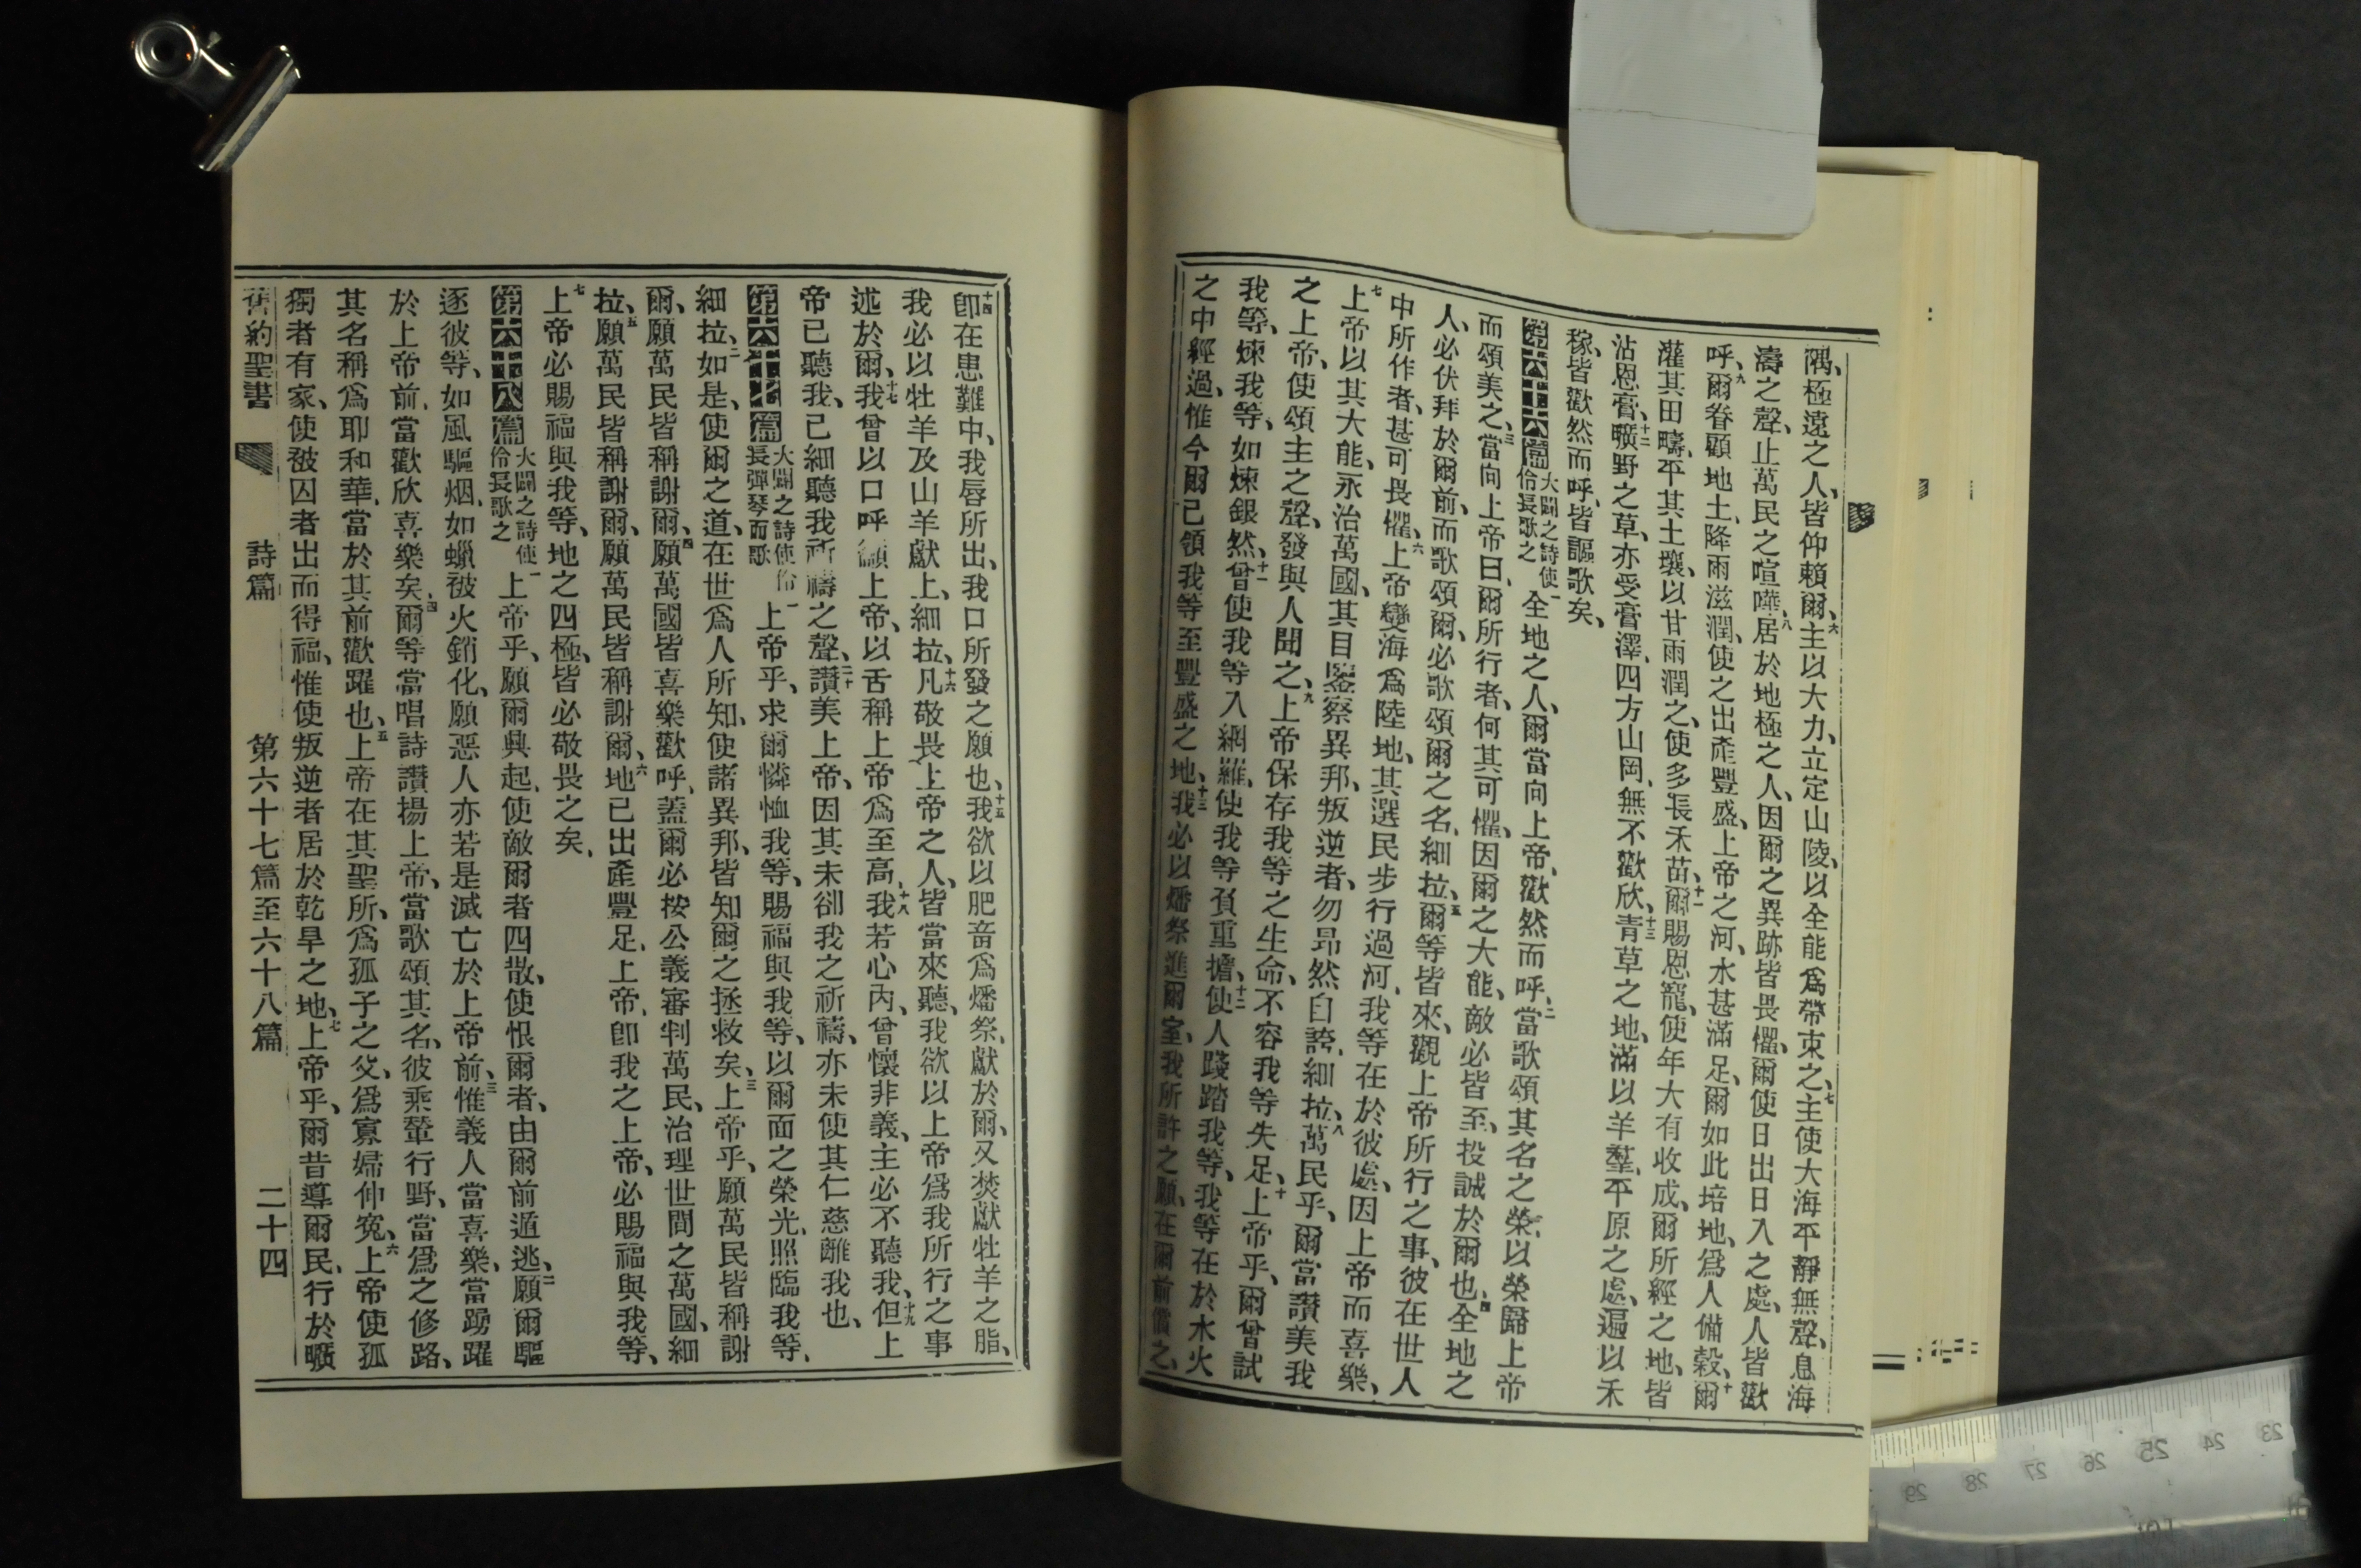 隅、極遠之人、皆仰賴爾、六主以大力、立定山陵、以全能爲帶束之、七主使大海平靜無聲、息海
濤之聲、止萬民之喧嘩、八居於地極之人、因爾之異跡皆畏懼、爾使日出日入之處、人皆歡
呼、九爾眷顧地土、降雨滋潤、使之出產豐盛、上帝之河、水甚滿足、爾如此培地、爲人備穀、十爾
灌其田疇、平其土壤、以甘雨潤之、使多長禾苗、十一爾賜恩寵、使年大有收成、爾所經之地、皆
沾恩膏、十二曠野之草、亦受膏澤、四方山岡、無不歡欣、十三青草之地、滿以羊羣、平原之處、遍以禾
稼、皆歡然而呼、皆謳歌矣、
第六十六篇 大闢之詩使伶長歌之 一全地之人、爾當向上帝、歡然而呼、二當歌頌其名之榮、以榮歸上帝
而頌美之、三當向上帝曰、爾所行者、何其可懼、因爾之大能、敵必皆至、投誠於爾也、四全地之
人、必伏拜於爾前、而歌頌爾、必歌頌爾之名、細拉、五爾等皆來、觀上帝所行之事、彼在世人
中所作者、甚可畏懼、六上帝變海爲陸地、其選民步行過河、我等在於彼處、因上帝而喜樂、
七上帝以其大能、永治萬國、其目鑒察異邦、叛逆者、勿昂然自誇、細拉、八萬民乎、爾當讚美我
之上帝、使頌主之聲、發與人聞之、九上帝保存我等之生命、不容我等失足、十上帝乎、爾曾試
我等、煉我等、如煉銀然、十一曾使我等入網羅、使我等負重擔、十二使人踐踏我等、我等在於水火
之中經過、惟今爾已領我等至豐盛之地、十三我必以燔祭進爾室、我所許之願、在爾前償之、
十四卽在患難中、我唇所出、我口所發之願也、十五我欲以肥畜爲燔祭、獻於爾、又焚獻牡羊之脂、
我必以牡羊及山羊獻上、細拉、十六凡敬畏上帝之人、皆當來聽、我欲以上帝爲我所行之事
述於爾、十七我曾以口呼籲上帝、以舌稱上帝爲至高、十八我若心內、曾懷非義、主必不聽我、十九但上
帝已聽我、已細聽我祈禱之聲、二十讚美上帝、因其未卻我之祈禱、亦未使其仁慈離我也、
第六十七篇 大闢之詩使伶長彈琴而歌 一上帝乎、求爾憐恤我等、賜福與我等、以爾面之榮光、照臨我等、
細拉、二如是、使爾之道、在世爲人所知、使諸異邦、皆知爾之拯救矣、三上帝乎、願萬民皆稱謝
爾、願萬民皆稱謝爾、四願萬國皆喜樂歡呼、蓋爾必按公義審判萬民、治理世間之萬國、細
拉、五願萬民皆稱謝爾、願萬民皆稱謝爾、六地已出產豐足、上帝、卽我之上帝、必賜福與我等、
七上帝必賜福與我等、地之四極、皆必敬畏之矣、
第六十八篇 大闢之詩使伶長歌之 一上帝乎、願爾興起、使敵爾者四散、使恨爾者、由爾前遁逃、二願爾驅
逐彼等、如風驅烟、如蠟被火銷化、願惡人亦若是滅亡於上帝前、三惟義人當喜樂、當踴躍
於上帝前、當歡欣喜樂矣、四爾等當唱詩讚揚上帝、當歌頌其名、彼乘輦行野、當爲之修路、
其名稱爲耶和華、當於其前歡躍也、五上帝在其聖所、爲孤子之父、爲寡婦伸寃、六上帝使孤
獨者有家、使被囚者出而得福、惟使叛逆者居於乾旱之地、七上帝乎、爾昔導爾民、行於曠
舊約聖書 詩篇 第六十七篇至六十八篇 二十四
23 24 25 26 27 28 29